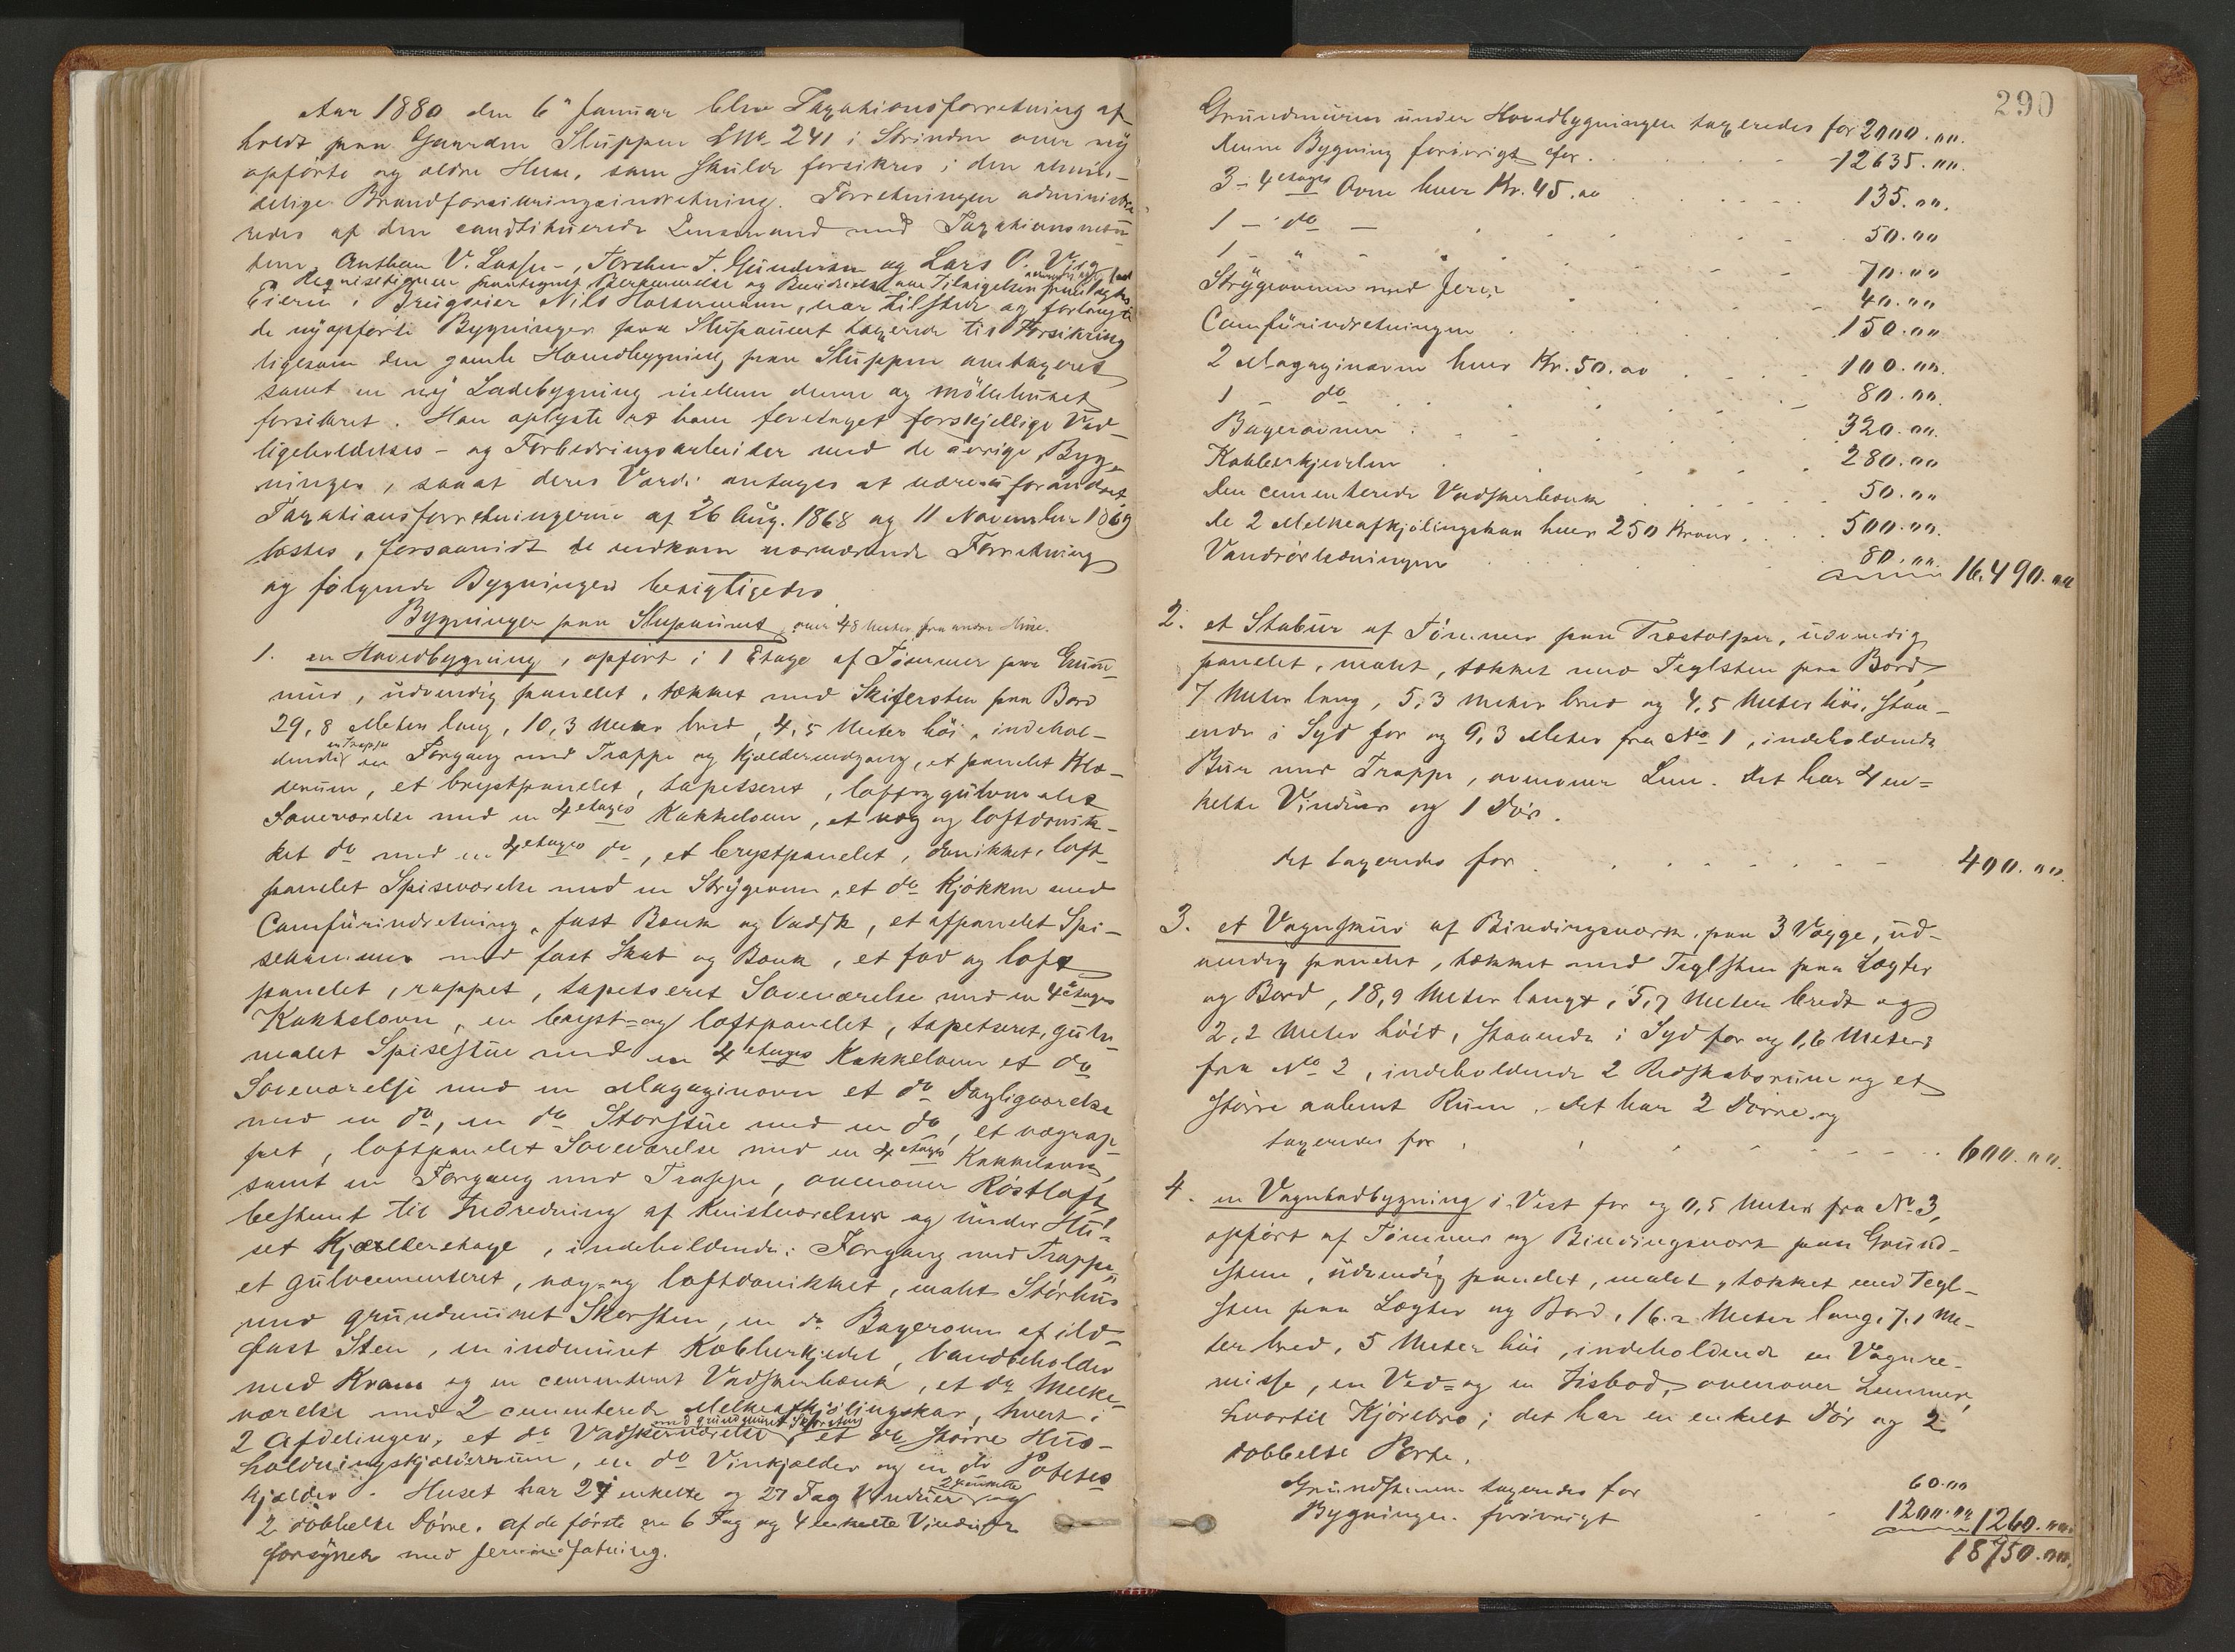 Aar 1880 den 6 Januar blev Taxationsforretning af
holdt paa Gaarden Sluppen LNo. 241 i Strinden over ny
opførte og ældre Huse, som skulde forsikres i den almin-
delige Brandforsikringsindretning. Forretningen administre
redes af den constituerede Lensmand med Taxationsmæn
dene Anthon V. Lassen, T. Gundersen og Lars O. Vig
Requisitionen paategnet Berammelse og Beviis
Eieren Brugseier Nils Halsermann, var tilstede og forlangte
de nyopførte Bygninger paa Slupaunet taxerede til Forsikring
ligesom den gamle Hovedbygning paa Sluppen omtaxeret
samt en ny Ladebygning mellem denne og
forsikret. Han oplyste at have foretaget forskjellige Ved-
ligeholdelses- og Forbedringsarbeider med de øvrige Byg-
ninger, saaat deres Værdi antages at være uforandret
Taxationsforretningerne af 26 Aug. 1868 og 11 November 1869
læstes, forsaavidt de vedkom nærværende Forretning
og følgende Bygninger besigtigedes
Bygninger paa Slupaunet, over 48 Meter fra andre Huse.
1. en Hovedbygning, opført i 1 Etage af Tømmer paa Grund-
mur, udvendig panelet, tækket med Skifersten paa Bord
29,8 Meter lang, 10,3 Meter bred, 4,5 Meter høi, indehol-
dende en Trappe en Forgang med Trappe og Kjældernedgang, et panelet Klæ-
derum, et brystpanelet, tapetseret, loft og gulvmalet
Soveværelse med en 4 etages Kakkelovn, et væg og loftdonik-
ket do med en 4 etages do, et brystpanelet, donikket, loft-
panelet Spiseværelse med en Strygeovn, et do Kjøkken med
Comfurindretning, fast Bænk og Vadsk, et afpanelet Spi-
sekammer med fast Skab og Bænk, et fod og loft
panelet, rappet, tapetseret Soveværelse med en 4 etages
Kakkelovn, en bryst- og loftpanelet, tapetseret, gulv-
malet Spisestue med en 4 etages Kakkelovn et do
Soveværelse med en Magazinovn et do Dagligværelse
med en do, en do Storstue med en do, et vægrap-
pet, loftpanelet Soveværelse med en 4 etages Kakkelovn,
samt en Forgang med Trappe, ovenover Røstloft
bestemt til Indredning af Kvistværelser og under Hu-
set Kjælleretage, indeholdende: Forgang med Trappe,
et gulvcementeret, væg- og loftdonikket, malet Størhus
med grundmuret Skorsten, en do Bagerovn af ild-
fast Sten, en indmuret Kobberkjedel, Vandbeholder
med Kran og en cementeret Vadskerbænk, et do Melke-
værelse med 2 cementerede Melkeafkjølingskar, hvert i
2 Afdelinger, et do Vadskerværelse med grundmuret Skorsten, et do større Hus-
holdningskjælderrum, en do Vinkjælder og en do Potetes
kjælder. Huset har 27 enkelte og 27 Fag Vinduer 2 enkelte og
2 dobbelte Dørre. Af de første er 6 Fag og 4 enkelte Vinduer
forsynet med Jernindfatning.
290
Grundmuren under Hovedbygningen taxeredes for 2000.00.
Denne Bygning forøvrigt for 12635.00.
3 – 4 etages Ovne hver Kr. 45.00 135.00.
1 – do – 50.00
1 – " " 70.00
Strygeovnen med Jern 40.00
Comfurindretningen 150.00
2 Magazinovne hver Kr. 50.00 100.00.
1 – do 80.00.
Bagerovnen 320.00.
Kobberkjedelen 280.00
Den cementerede Vadskerbænk 50.00
De 2 Melkeafkjølingskar hver 250 Kroner 500.00.
Vandrørledningen 80.00. 16.490.00
2. et Stabur af Tømmer paa Træstolper, udvendig
panelet, malet, tækket med Teglsten paa Bord,
7 Meter lang, 5,3 Meter bred og 4,5 Meter høi, staa-
ende i Syd for og 9,3 Meter fra No 1, indeholdende
Bur med Trappe, ovenover Lem. Det har 4 en-
kelte Vinduer og 1 Dør.
det taxeredes for 400.00.
3. et Vognskur af Bindingsværk paa 3 Vægge, ud-
vendig panelet, tækket med Teglsten paa Lægter
og Bord, 18,9 Meter langt, 5,7 Meter bredt og
2,2 Meter høit, staaende i Syd for og 1,6 Meter
fra No 2, indeholdende 2 Redskabsrum og et
større aabent Rum. Det har 2 Dørre og
taxeredes for 600.00.
4. en Vognbodbygning i Vest for og 0,5 Meter fra No 3,
opført af Tømmer og Bindingsværk paa Grund-
stene, udvendig panelet, malet, tækket med Tegl-
sten paa Lægter og Bord, 16.2 Meter lang, 7,1 Me-
ter bred, 5 Meter høi, indeholdende en Vognre-
misse, en Ved- og en Iisbod, ovenover Lemmer,
hvortil Kjørebro; det har en enkelt Dør og 2
dobbelte Porte.
Grundstenene taxeredes for 60.00
Bygningen forøvrigt 1200.00 1260.00
18750.00.